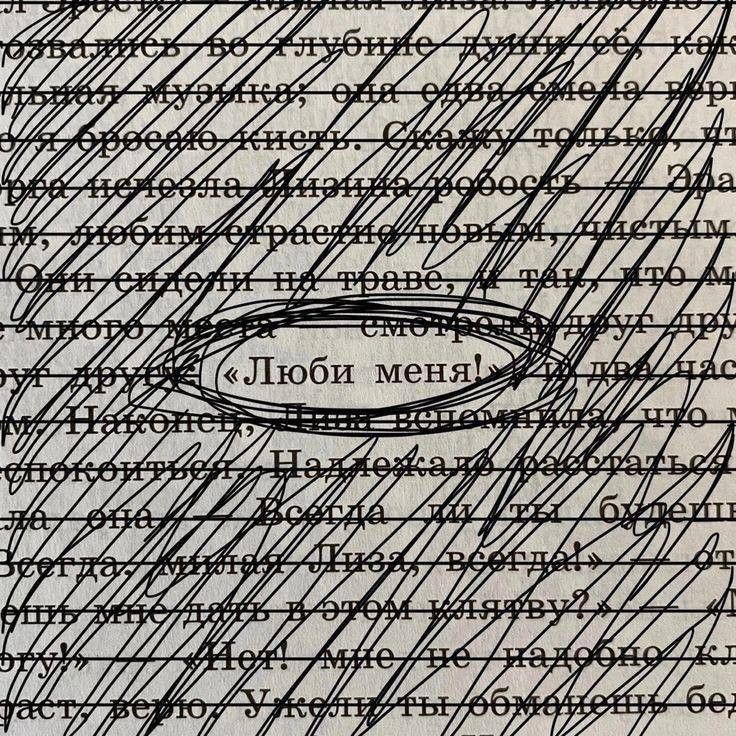 л Эраст! — Милая Лиза!
тозвались во глубине души её, как
льная музыка; она едва смела вер
о я бросаю кисть. Скажу только, чт
орга исчезла Лизина робость — Эра
им, любим страстно новым, чистым
Они сидели на траве, и так, что м
много места смотрели друг дру
уг другу: «Люби меня!», и два час
м. Наконец, Лиза вспомнила, что м
спокоиться. Надлежало расстаться
ла она. — Всегда ли ты будешь
Всегда, милая Лиза, всегда!» — от
ешь мне дать в этом клятву?» — «М
огу!» — «Нет! мне не надобно кл
раст, верю. Ужели ты обманешь бед